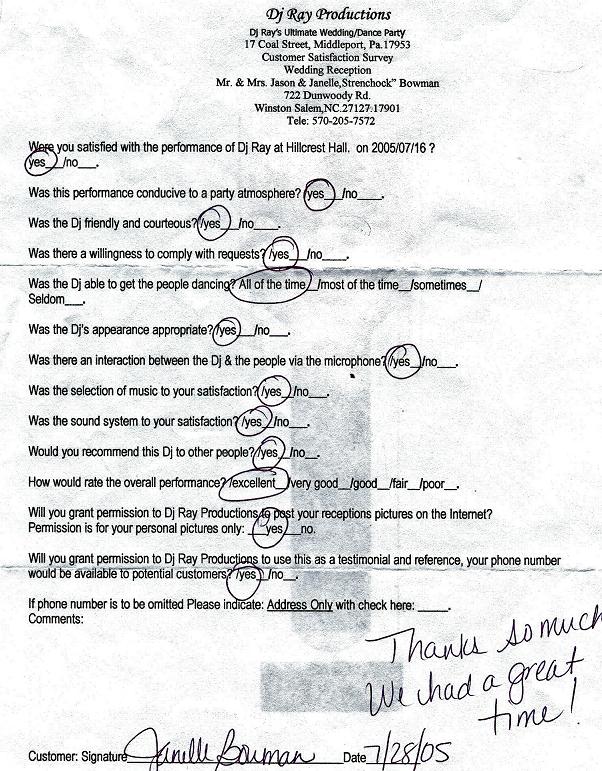 Dj Ray Productions
Dj Ray's Ultimate Wedding/Dance Party
17 Coal Street, Middleport, Pa.17953
Customer Satisfaction Survey
Wedding Reception
Mr. & Mrs. Jason & Janelle,Strenchock" Bowman
722 Dunwoody Rd.
Winston Salem,NC.27127.17901
Tele: 570-205-7572
Were you satisfied with the performance of Dj Ray at Hillcrest Hall. on 2005/07/16 ?
yes__/no___.
Was this performance conducive to a party atmosphere? /yes__/no___.
Was the Dj friendly and courteous? /yes__/no___.
Was there a willingness to comply with requests? /yes__/no___.
Was the Dj able to get the people dancing? All of the time__/most of the time__/sometimes__/
Seldom___.
Was the Dj's appearance appropriate? /yes__/no___.
Was there an interaction between the Dj & the people via the microphone? /yes__/no__.
Was the selection of music to your satisfaction? /yes__/no___.
Was the sound system to your satisfaction? /yes__/no___.
Would you recommend this Dj to other people? /yes__/no__.
How would rate the overall performance? /excellent__/very good__/good__/fair__/poor__.
Will you grant permission to Dj Ray Productions to post your receptions pictures on the Internet?
Permission is for your personal pictures only: __yes___no.
Will you grant permission to Dj Ray Productions to use this as a testimonial and reference, your phone number
would be available to potential customers? /yes__/no__.
If phone number is to be omitted Please indicate: Address Only with check here: _____.
Comments:
Thanks so much
We had a great
time!
Customer: Signature Janelle Bowman Date 7/28/05